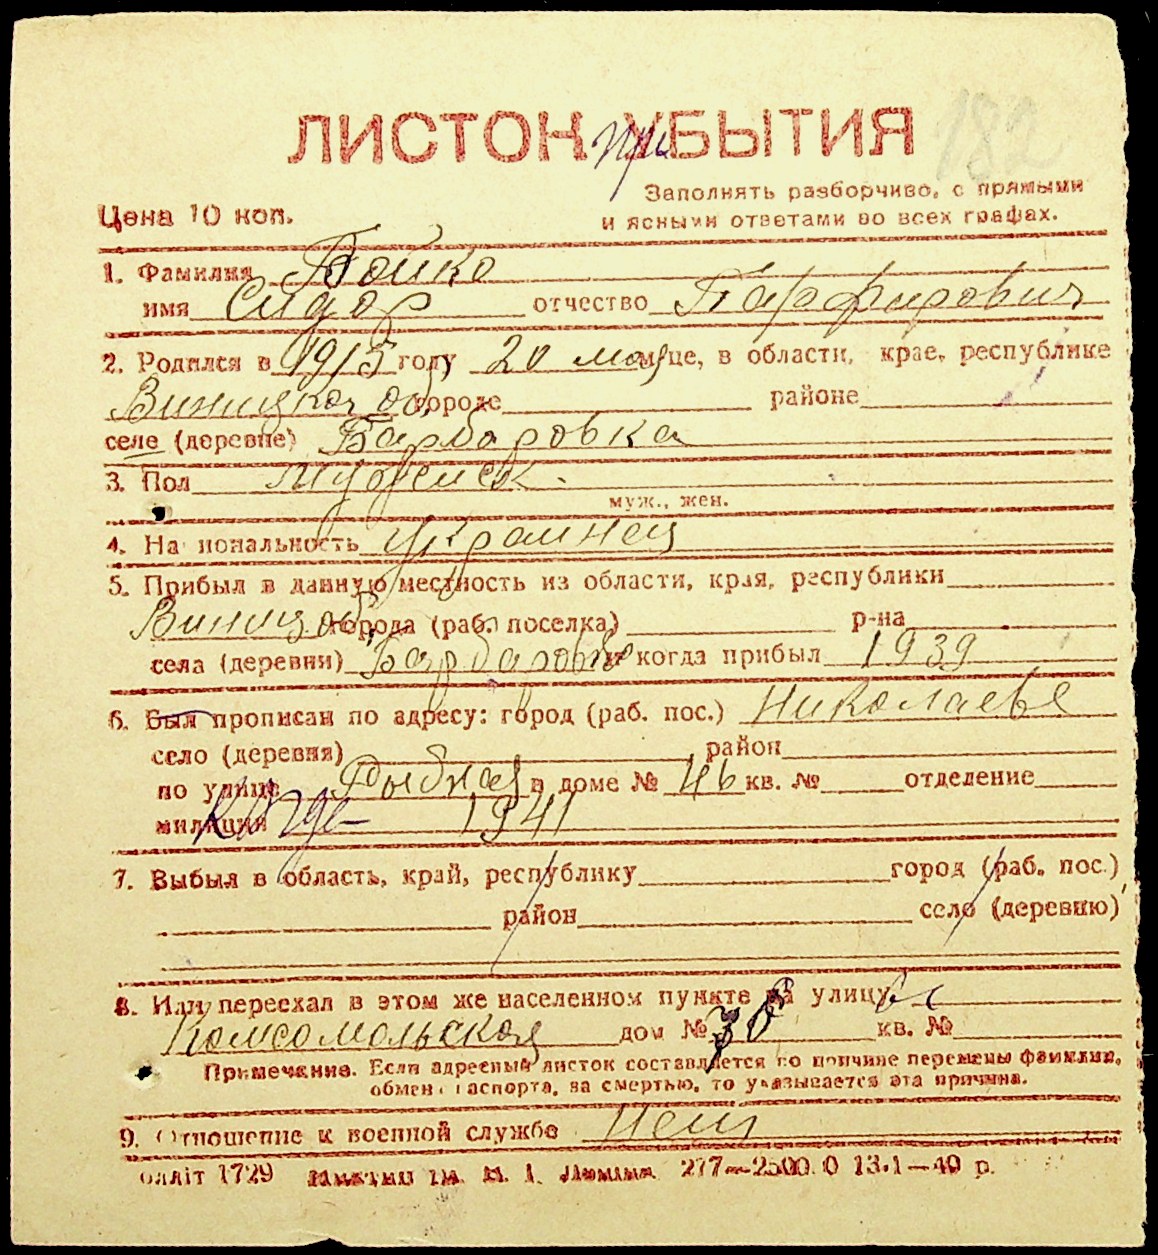 182
ЛИСТОК при УБЫТИЯ
Заполнять разборчиво, с прямыми
Цена 10 коп.
и ясными ответами во всех графах.
1. Фамилия Бойко
имя Сидор отчество Парфирович
2. Родился в 1915 году 20 мая м-це, в области, крае, республике
Виницкая об. городе районе
селе (деревне) Барбаровка
3. Пол мужеск.
муж., жен.
4. Национальность украинец
5. Прибыл в данную местность из области, края, республики
Виниц об. города (раб. поселка) р-на
села (деревни) Барбаровк и когда прибыл 1939
6. Был прописан по адресу: город (раб. пос.) Николаеве
село (деревня) район
по улице Рыбная в доме № 46 кв. № отделение
милиции когда 1941
7. Выбыл в область, край, республику город (раб. пос.)
район село (деревню)
8. Или переехал в этом же населенном пункте на улицу
Комсомольская дом № 36 кв. №
Примечание. Если адресный листок составляется по причине перемены фамилии,
обмена паспорта, за смертью, то указывается эта причина.
9. Отношение к военной службе
облліт 1729 277—2500.0 13.1—40 р.